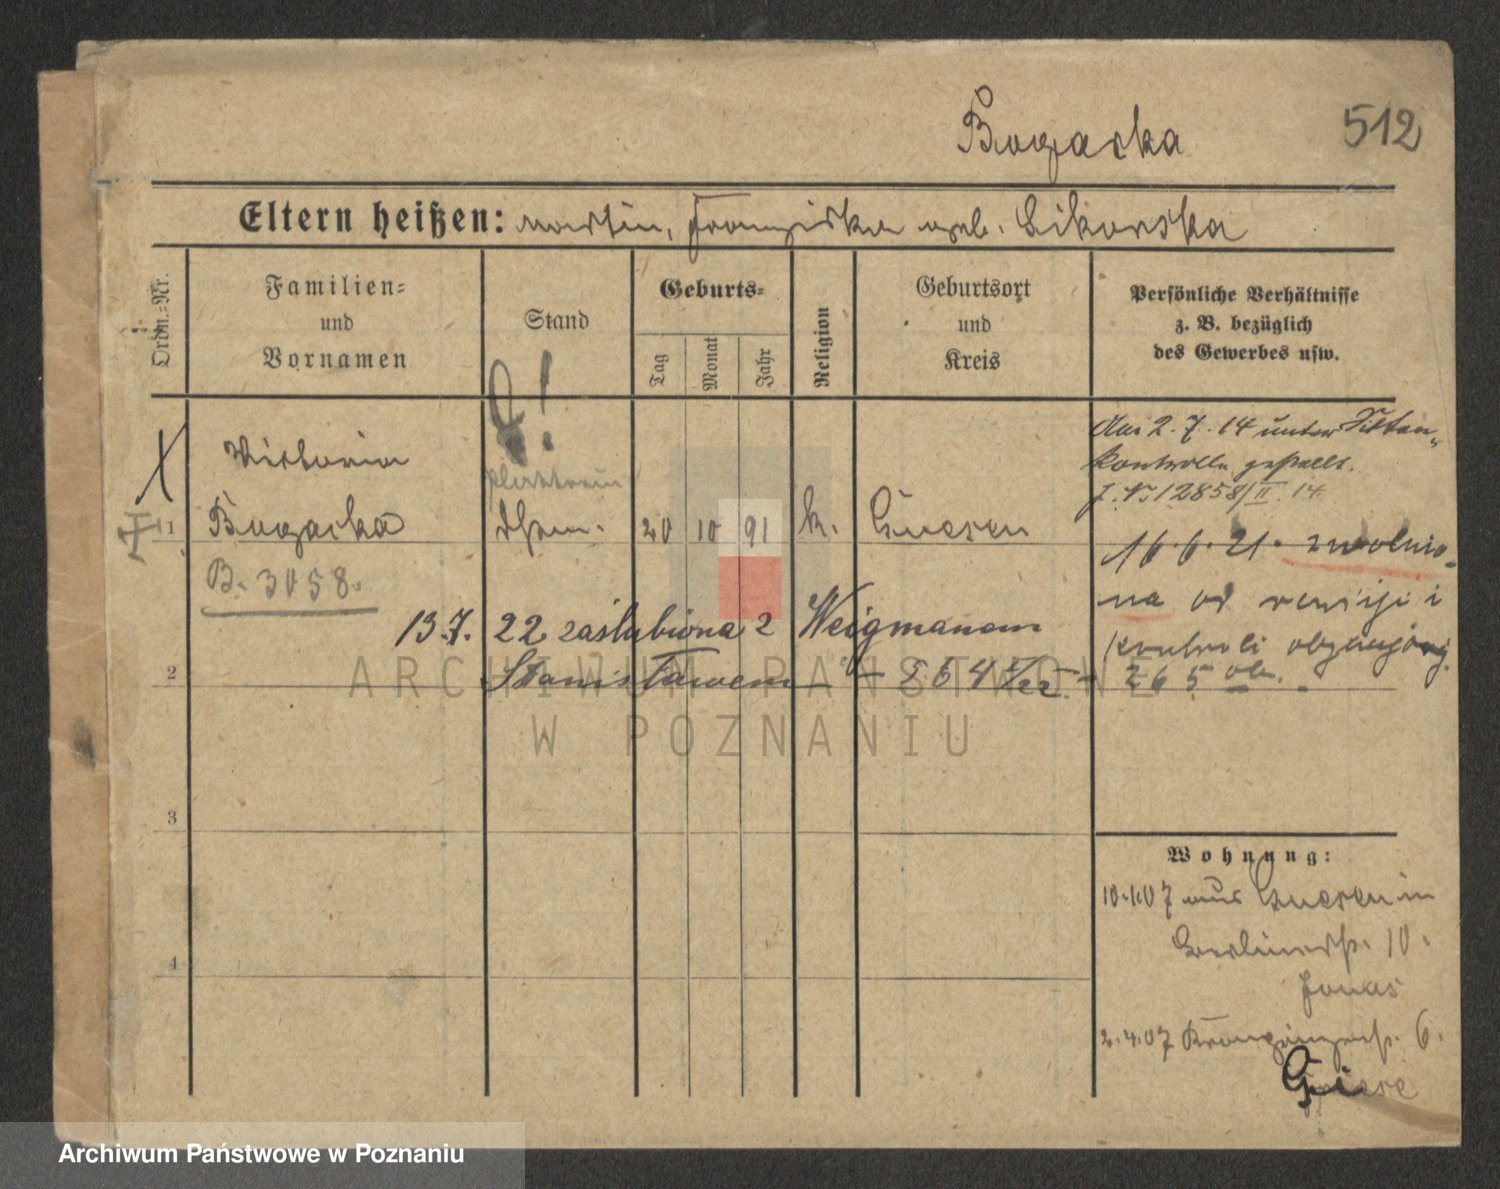 Bogacka
512
Eltern heißen: Martin, Franziska geb. Sikorska
Ordn.=Nr.
Familien=
und
Vornamen
Stand
Geburts=
Tag
Monat
Jahr
Religion
Geburtsort
und
Kreis
Persönliche Verhältnisse
z. B. bezüglich
des Gewerbes usw.
Am 2.7.14 unter Sitten-
kontrolle gestellt.
J. N. 12858/II. 14.
Victoria
Plätterin
1
Bogacka
20 10 91 k. Gnesen
B. 3058.
16.6.21. zwolnio-
na od rewizji i
kontroli obyczajowej
265
13.7. 22 zaślubiona z Weigmanem
Stanisławem
2
3
4
Wohnung:
10.1.07 aus Gnesen in
Berlinerstr. 10.
Jonas
2.4.07 Kronprinzenstr. 6.
Giese
ARCHIWUM PAŃSTWOWE
W POZNANIU
Archiwum Państwowe w Poznaniu